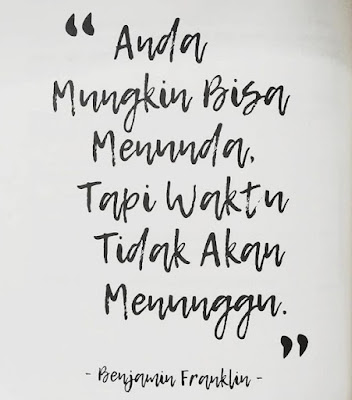 “ Anda
Mungkin Bisa
Menunda,
Tapi Waktu
Tidak Akan
Menunggu. ”
- Benjamin Franklin -